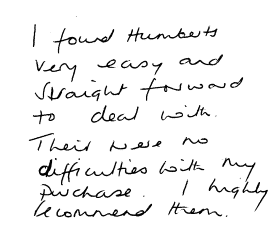 I found Humberts
very easy and
straight forward
to deal with.
Their were no
difficulties with my
purchase. I highly
recommend them.